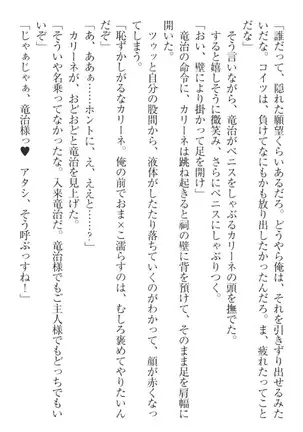 「誰だって、隠れた願望くらいあるだろ。どうやら俺は、それを引きずり出せるみた
いだな。コイツは、負けてなにもかも放り出したかったんだろ。ま、疲れたってこと
だな」
　そう言いながら、竜治がペニスをしゃぶるカリーネの頭を撫でた。
　すると、カリーネは嬉しそうに微笑み、さらにペニスにしゃぶりつく。
「おい、壁に背中を掛かって足を開け」
　竜治の命令に、カリーネは跳ね起きると祠の壁に背を預けて、そのまま足を肩幅に
開いた。
　ツゥッと自分の股間から、液体がしたたり落ちていくのがわかって、顔が赤くなっ
てしまう。
「恥ずかしがるなカリーネ。俺の前でおま×こ濡らすのは、むしろ褒めてやりたいん
だ」
「あ、ああぁ……ホントに、え、ええと……？」
　カリーネが、おどおどと竜治を見上げた。
「そういや名乗ってなかったな。入来竜治だ。竜治様でもご主人様でもどっちでもい
いぞ」
「じゃぁじゃぁ、竜治様っ♥　アタシ、そう呼ぶっすね！」